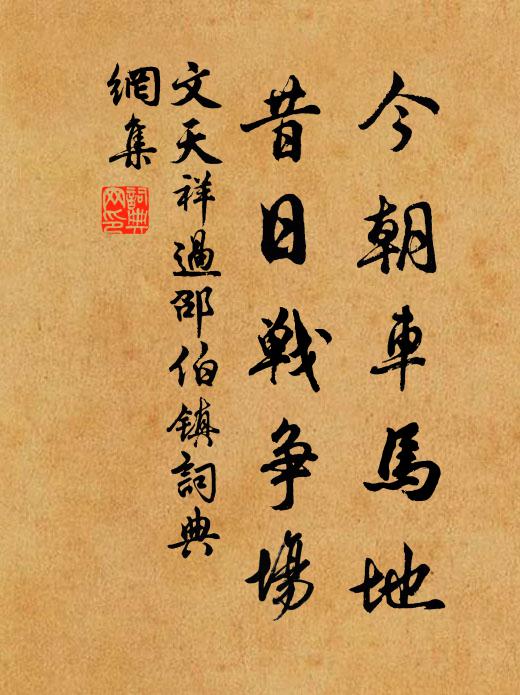 今朝車馬地
昔日戦争場
文天祥過邵伯镇詞典
網集
詞典
网印